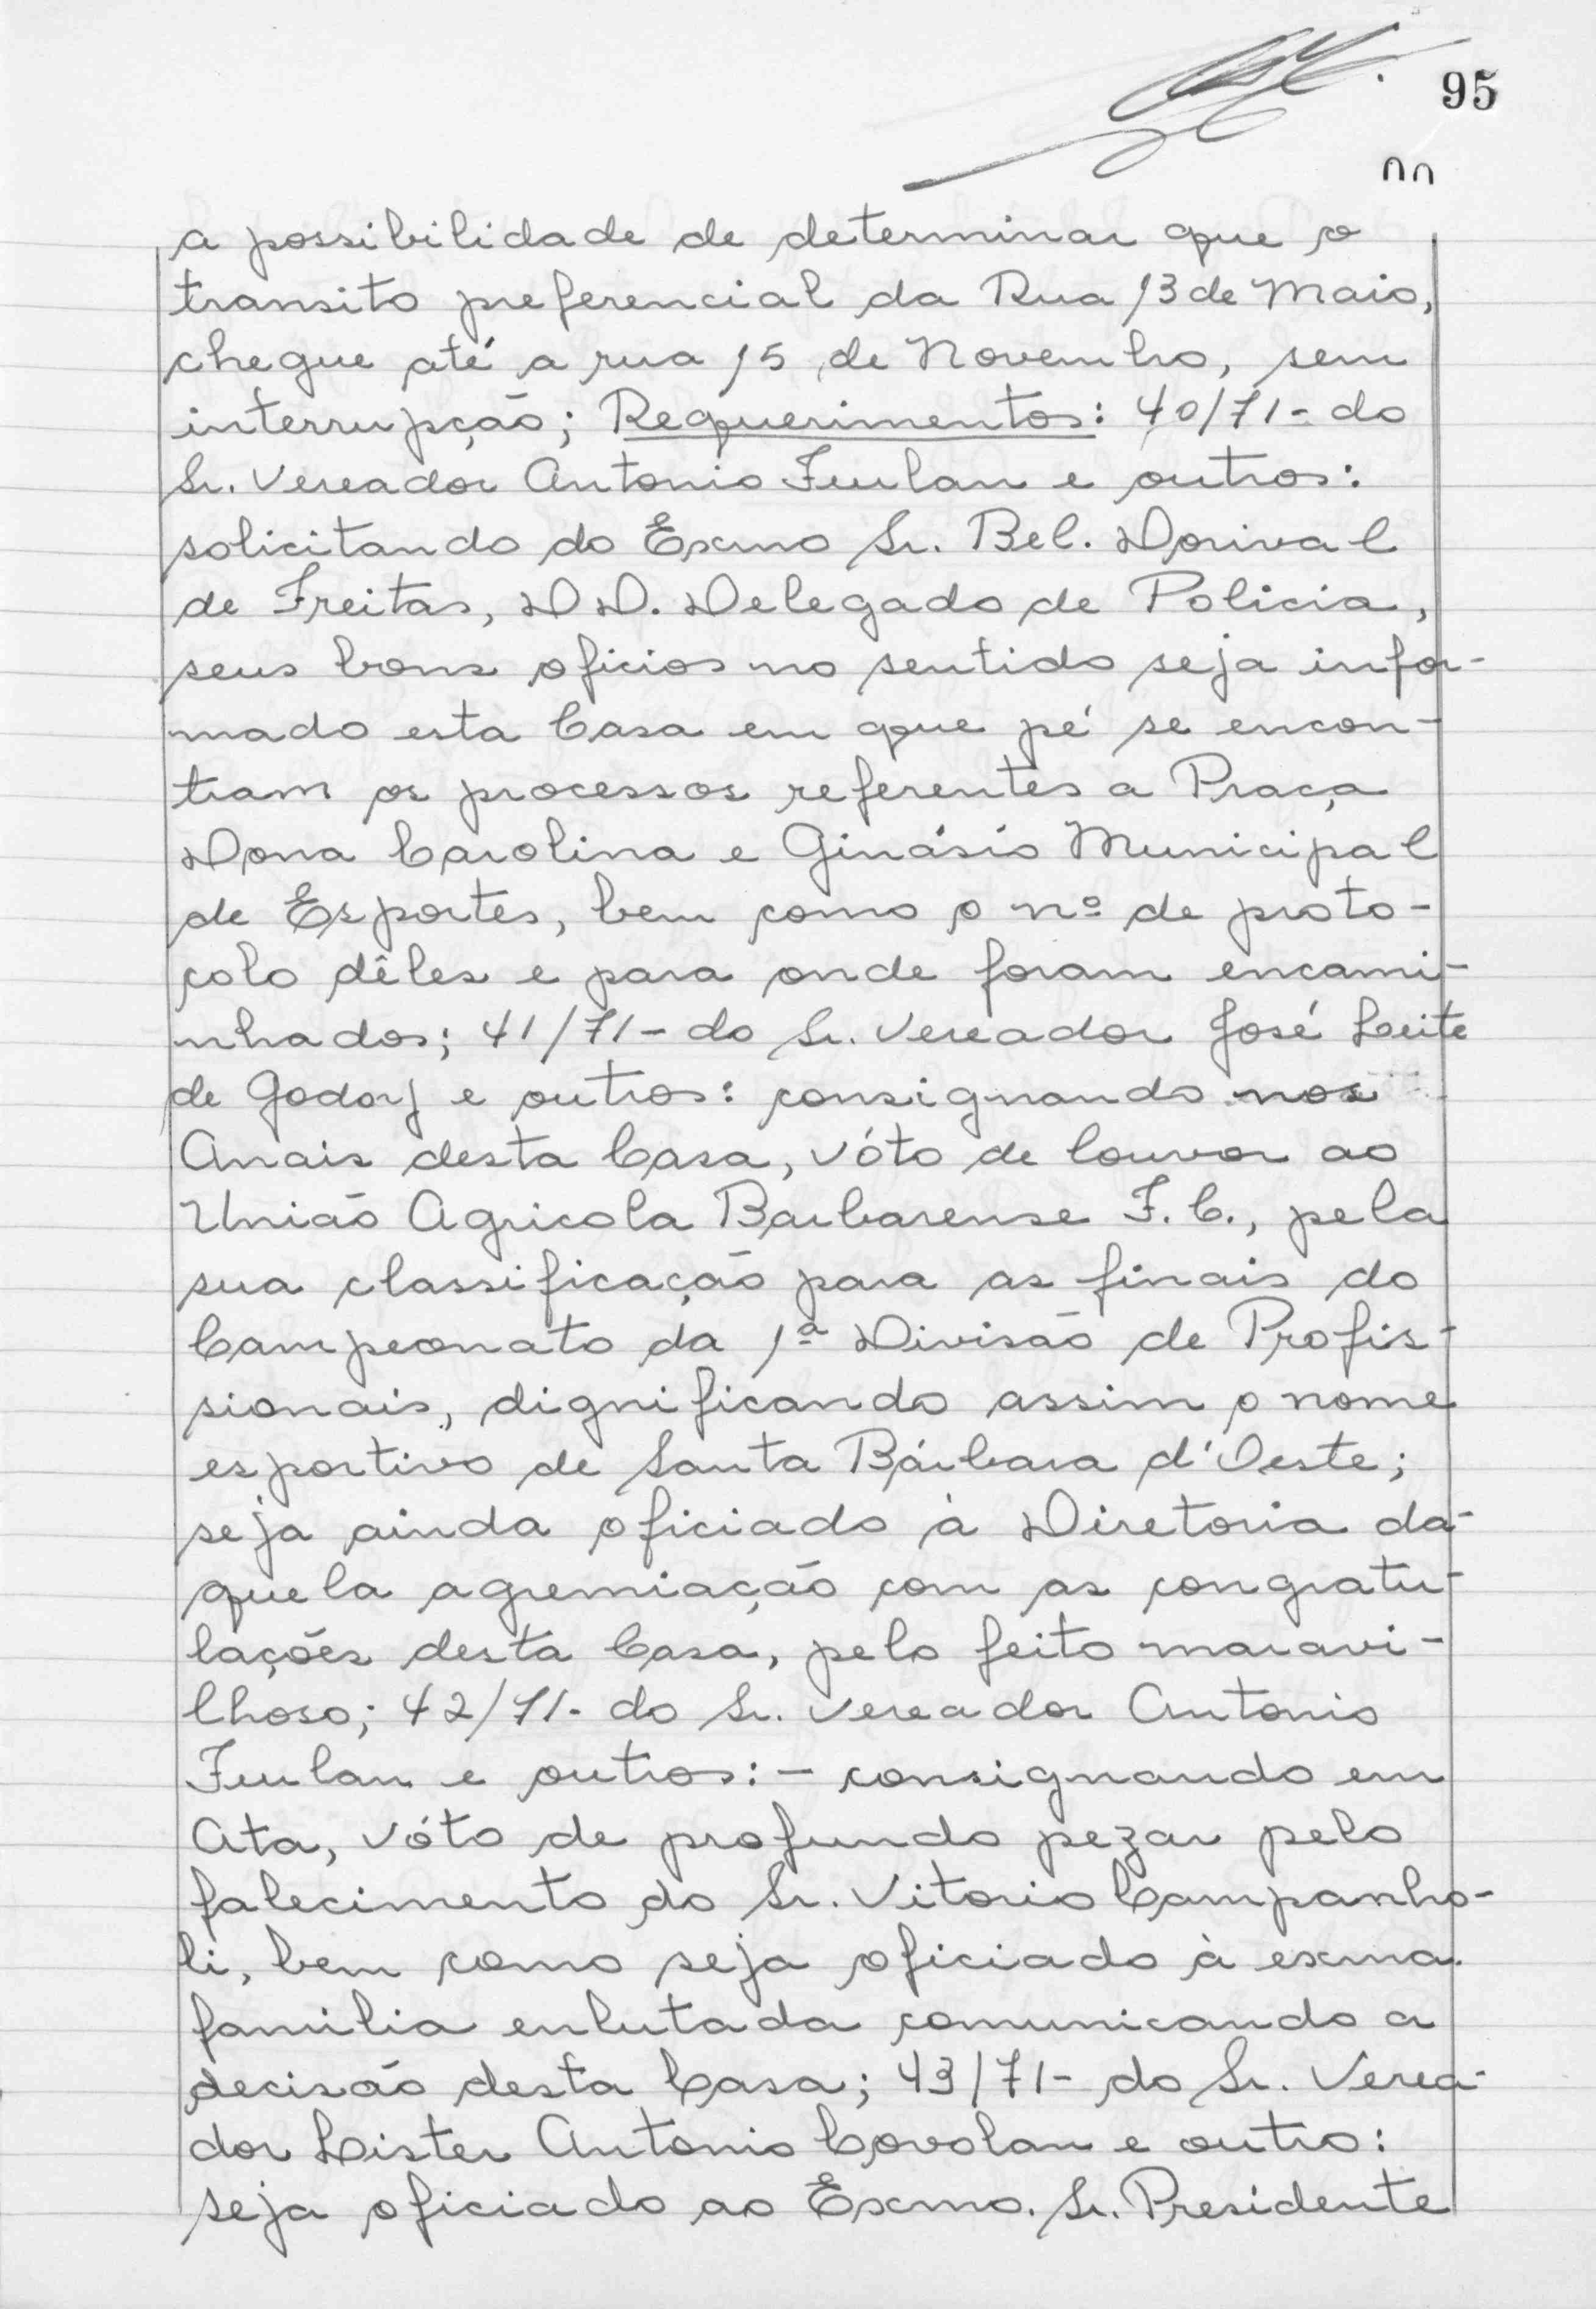 95
a possibilidade de determinar que o
transito preferencial da Rua 13 de Maio,
chegue até a rua 15 de Novembro, sem
interrupção; Requerimentos: 40/71- do
Sr. Vereador Antonio Furlan e outros:
solicitando do Exmo Sr. Bel. Dorival
de Freitas, DD. Delegado de Policia,
seus bons oficios no sentido seja infor-
mado esta Casa em que pé se encon-
tram os processos referentes a Praça
Dona Carolina e Ginásio Municipal
de Esportes, bem como o nº de proto-
colo dêles e para onde foram encami-
nhados; 41/71- do Sr. Vereador José Leite
de Godoy e outros: consignando nos
Anais desta Casa, vóto de louvor ao
União Agricola Barbarense F.C., pela
sua classificação para as finais do
Campeonato da 1ª Divisão de Profis-
sionais, dignificando assim o nome
esportivo de Santa Bárbara d'Oeste;
seja ainda oficiado à Diretoria da-
quela agremiação com as congratu-
lações desta Casa, pelo feito maravi-
lhoso; 42/71- do Sr. Vereador Antonio
Furlan e outros:- consignando em
Ata, vóto de profundo pezar pelo
falecimento do Sr. Vitorio Campanho-
li, bem como seja oficiado à exma.
familia enlutada comunicando a
decisão desta Casa; 43/71- do Sr. Verea-
dor Lister Antonio Covolan e outro:
seja oficiado ao Exmo. Sr. Presidente